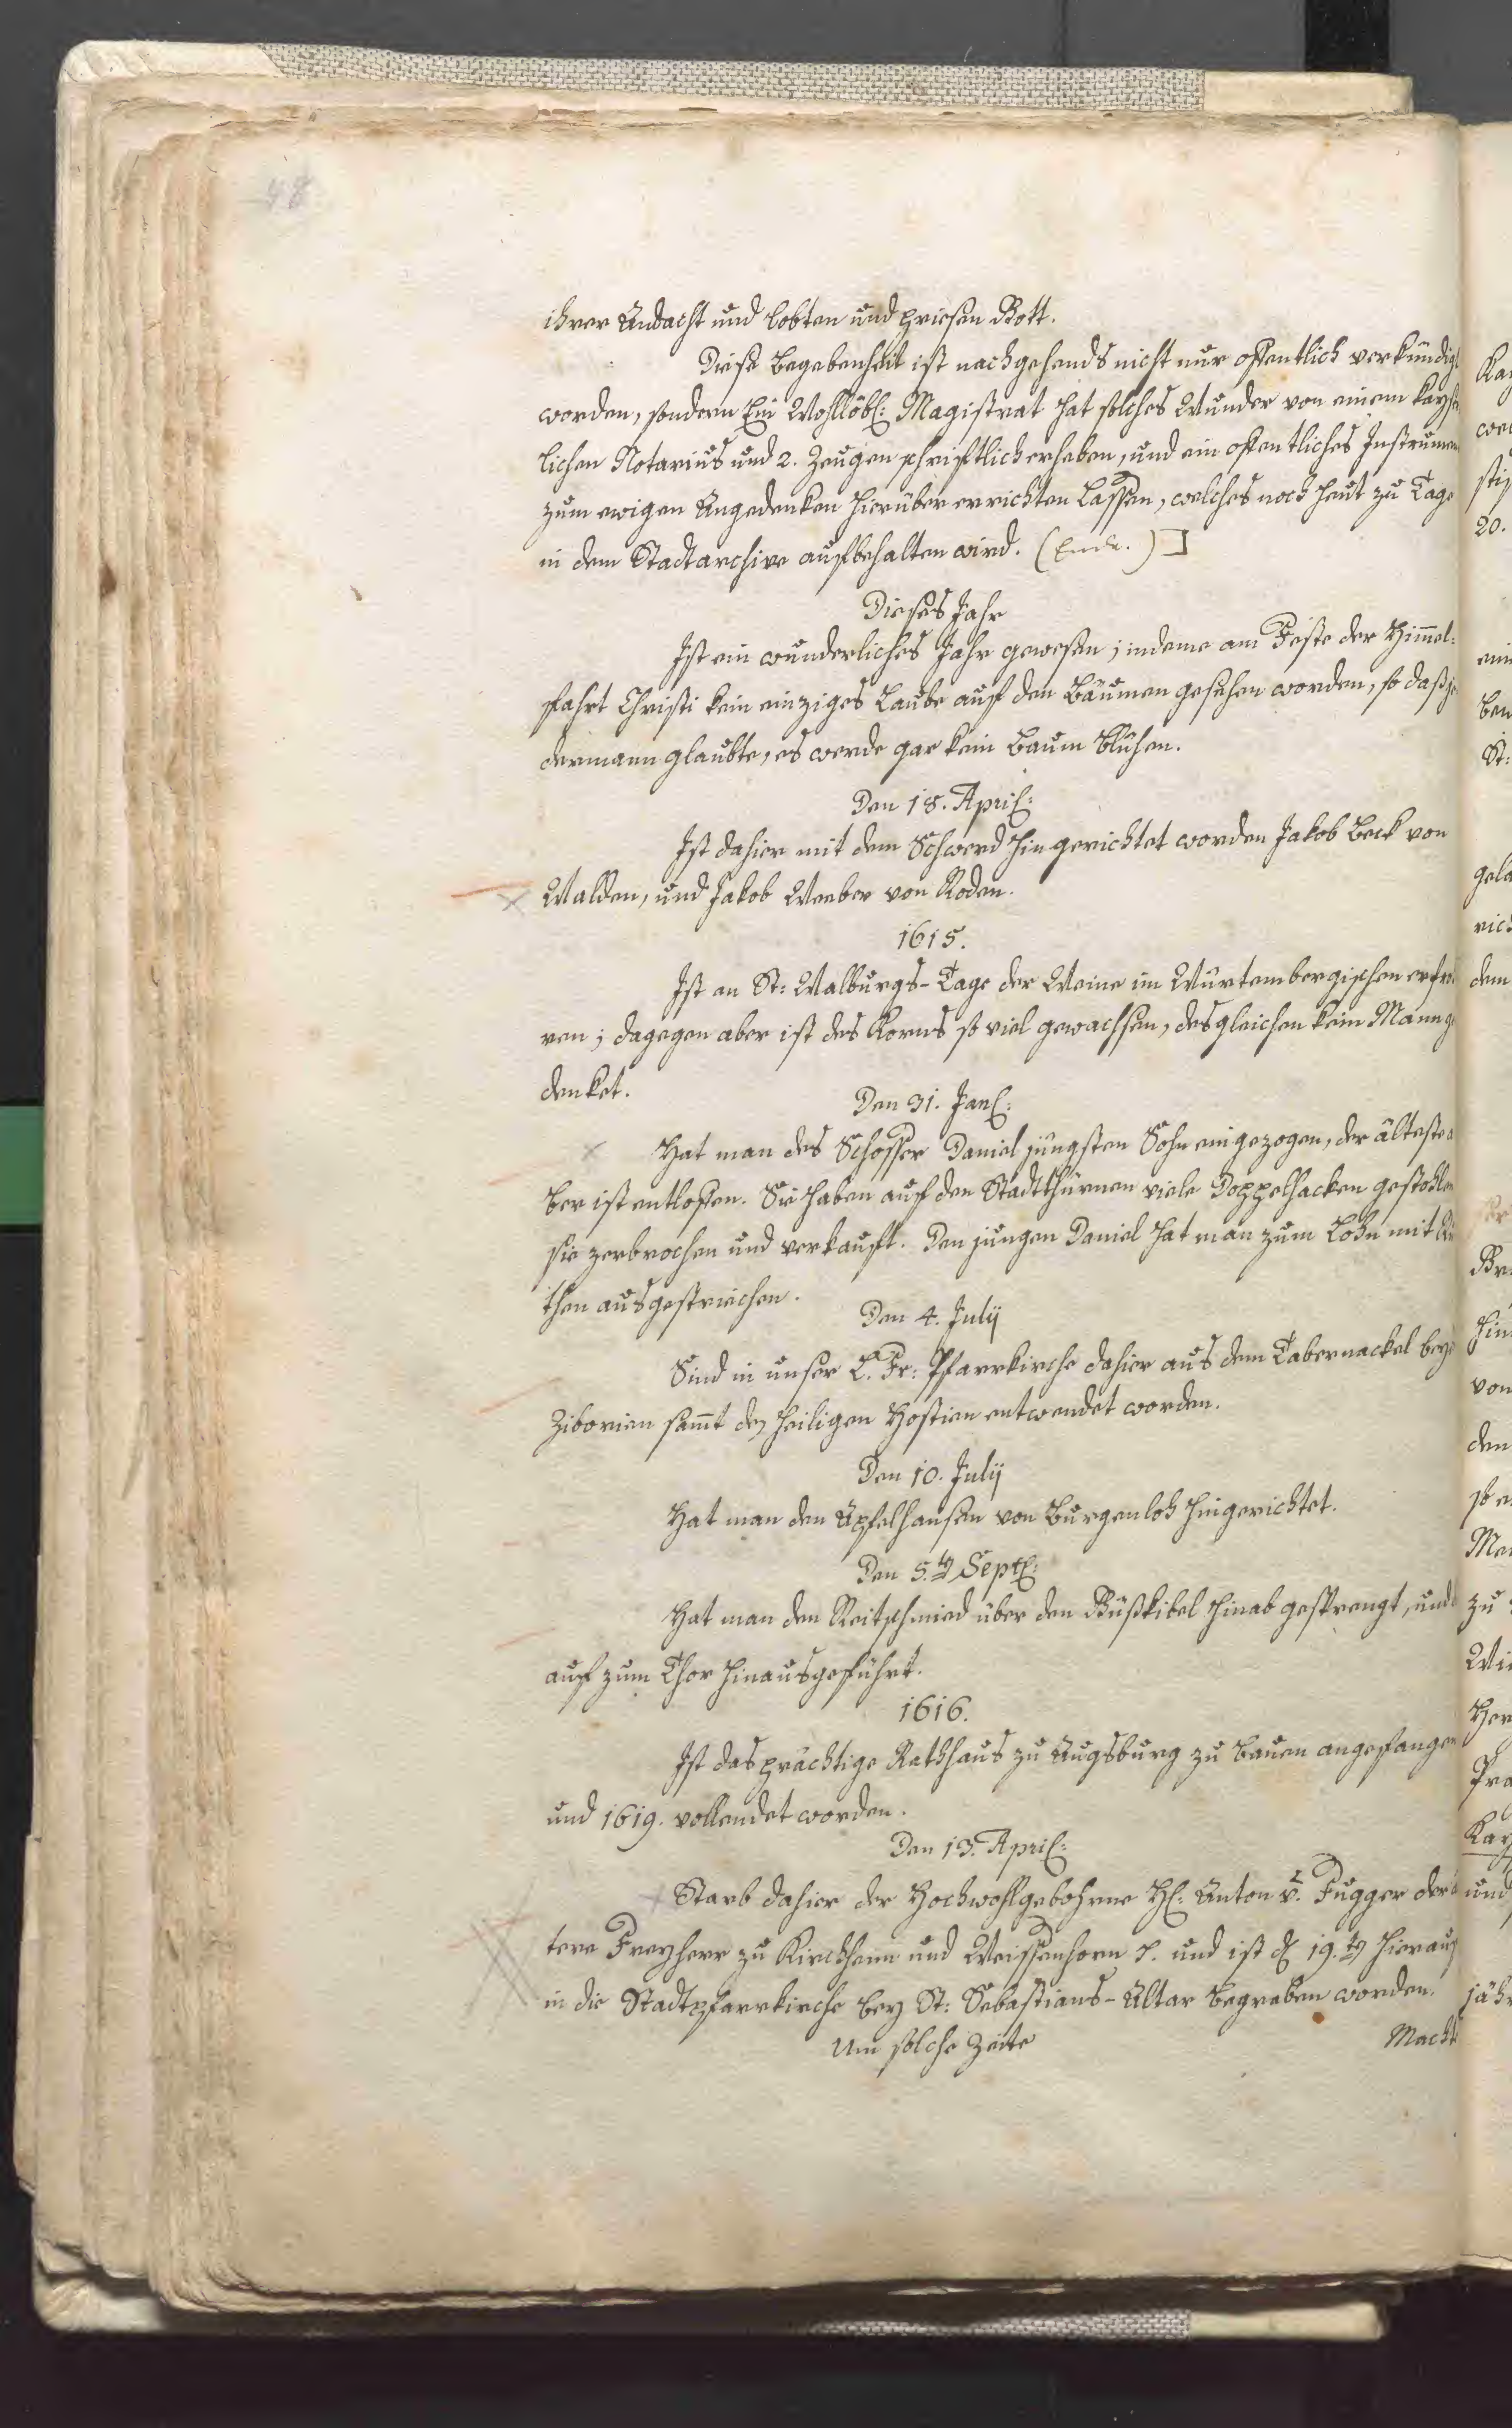 48
ihrer Andacht und lobten und priesen Gott.
Diese Begebenheit ist nachgehends nicht nur offentlich verkündig
worden, sondern Ein Wohllöbl: Magistrat hat solches Wunder von einem kayse
lichen Notarius und 2. Zeugen schriftlich erheben, und ein offentliches Instrumen
zum ewigen Angedenken hierüber errichten lassen, welches noch heut zu Tage
in dem Stadtarchive aufbehalten wird. (Ende.)]
Dieses Jahr
Ist ein wunderliches Jahr gewesen; indeme am Feste der Him̄el-
fahrt Christi kein einziges Laube auf den Bäumen gesehen worden, so daß je
dermann glaubte, es werde gar kein Baum blühen.
Den 18. April:
Ist dahier mit dem Schwerd hingerichtet worden Jakob Beck von
Walden, und Jakob Weeber von Roden.
1615.
Ist an St: Walburgs-Tage der Weine im Würtembergischen erfro
ren; dagegen aber ist des Korns so viel gewachsen, desgleichen kein Mann ge
denket.
Den 31. Jan:
Hat man des Schosser Daniel jüngsten Sohn eingezogen, der älteste a
ber ist entloffen. Sie haben auf den Stadtthürnen viele Doppelhacken gestohlen
sie zerbrochen und verkauft. Den jungen Daniel hat man zum Lohn mit Ru
then ausgestrichen.
Den 4. Julij
Sind in unser L. Fr: Pfarrkirche dahier aus dem Tabernackel bey
Ziborien sam̄t den heiligen Hostien entwendet worden.
Den 10. Julij
Hat man den Apfelhansen von Burgenloh hingerichtet.
Den 5.ten Sept:
Hat man den Reitschmied über den Bußkibel hinab gesprengt, und
auf zum Thor hinausgeführt.
1616.
Ist das prächtige Rathhaus zu Augsburg zu bauen angefangen
und 1619. vollendet worden.
Den 13. April:
Starb dahier der Hochwohlgebohrne H: Anton v. Fugger der ä
tere Freyherr zu Kirchheim und Weissenhorn und ist d 19.ten hierauf
in die Stadtpfarrkirche bey St: Sebastians-Altar begraben worden.
Um solche Zeite
Macht